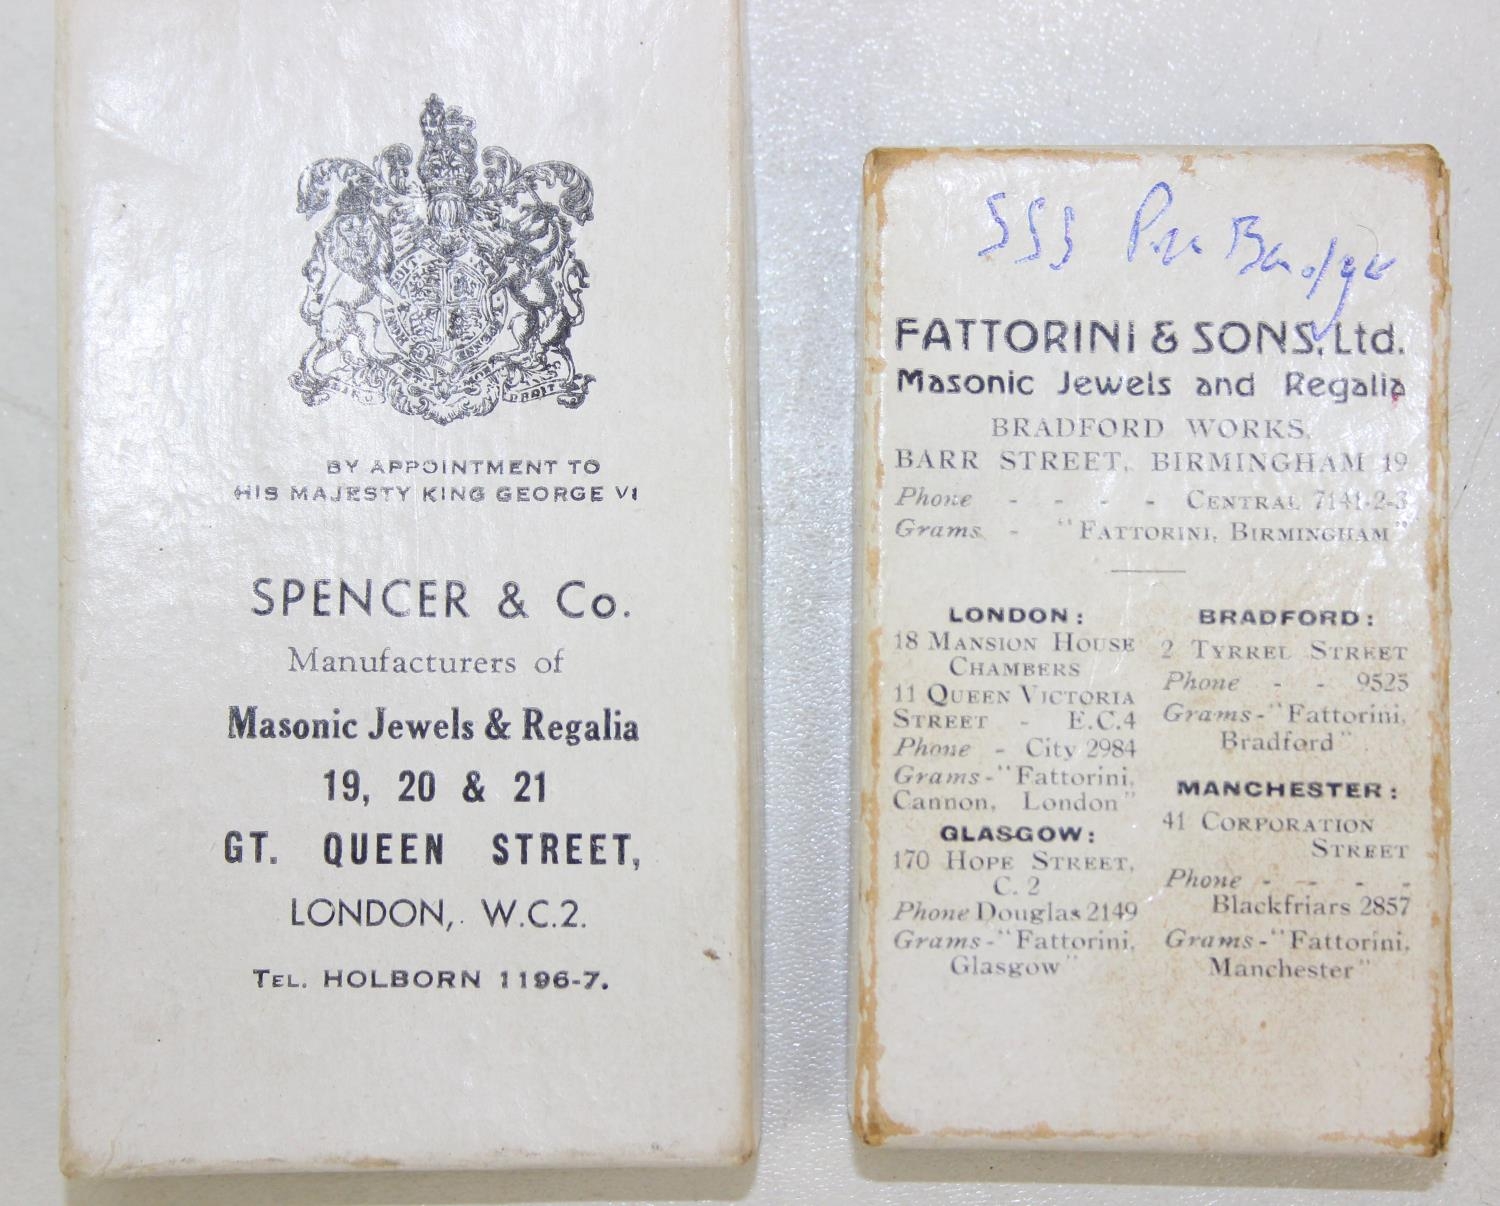 BY APPOINTMENT TO
HIS MAJESTY KING GEORGE VI
SPENCER & Co.
Manufacturers of
Masonic Jewels & Regalia
19, 20 & 21
GT. QUEEN STREET,
LONDON, W.C.2.
TEL. HOLBORN 1196-7.
SSS Badge
FATTORINI & SONS, Ltd.
Masonic Jewels and Regalia
BRADFORD WORKS,
BARR STREET, BIRMINGHAM 19
Phone - - - - CENTRAL 7141-2-3
Grams - "FATTORINI, BIRMINGHAM"
LONDON:
18 MANSION HOUSE
CHAMBERS
11 QUEEN VICTORIA
STREET - E.C.4
Phone - City 2984
Grams-"Fattorini,
Cannon, London"
GLASGOW:
170 HOPE STREET,
C. 2
Phone Douglas 2149
Grams-"Fattorini,
Glasgow"
BRADFORD:
2 TYRREL STREET
Phone - - 9525
Grams-"Fattorini,
Bradford"
MANCHESTER:
41 CORPORATION
STREET
Phone - - - -
Blackfriars 2857
Grams-"Fattorini,
Manchester"